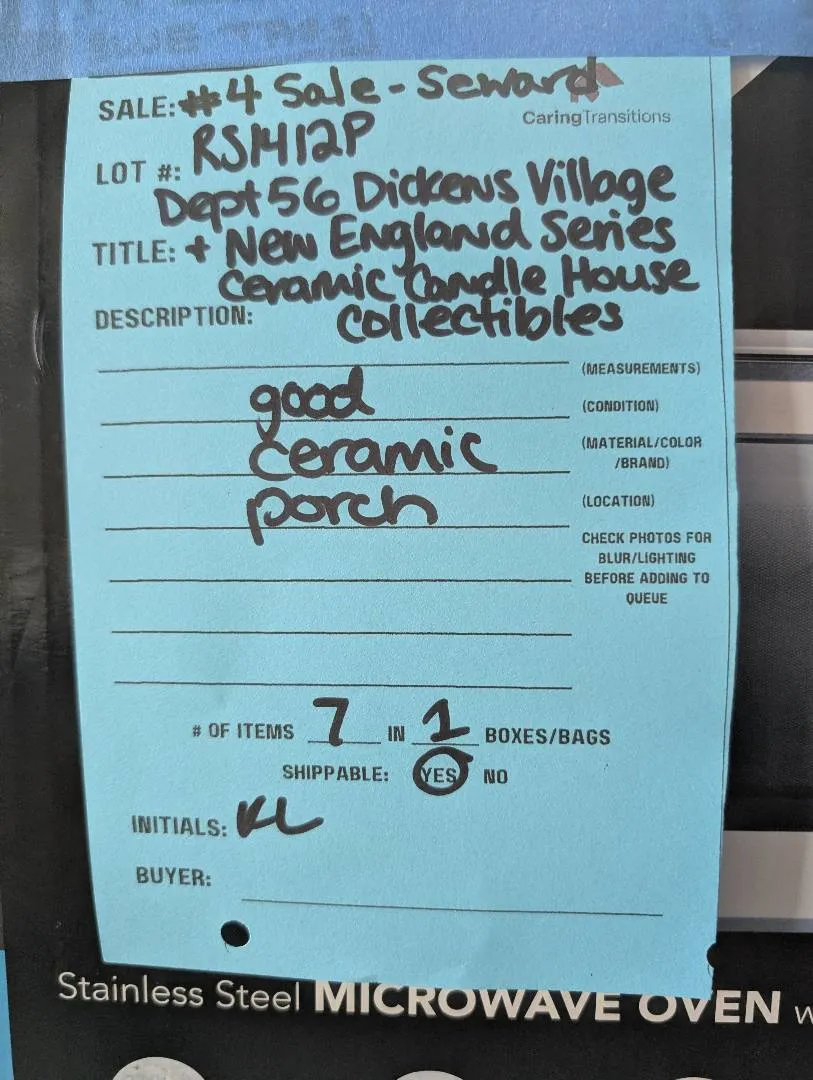 SALE: #4 Sale - Seward
CaringTransitions
LOT #: RS1412P
Dept 56 Dickens Village
TITLE: + New England Series
Ceramic Candle House
DESCRIPTION: Collectibles
(MEASUREMENTS)
good (CONDITION)
ceramic (MATERIAL/COLOR
/BRAND)
porch (LOCATION)
CHECK PHOTOS FOR
BLUR/LIGHTING
BEFORE ADDING TO
QUEUE
# OF ITEMS 7 IN 1 BOXES/BAGS
SHIPPABLE: YES NO
INITIALS: KL
BUYER:
Stainless Steel MICROWAVE OVEN w